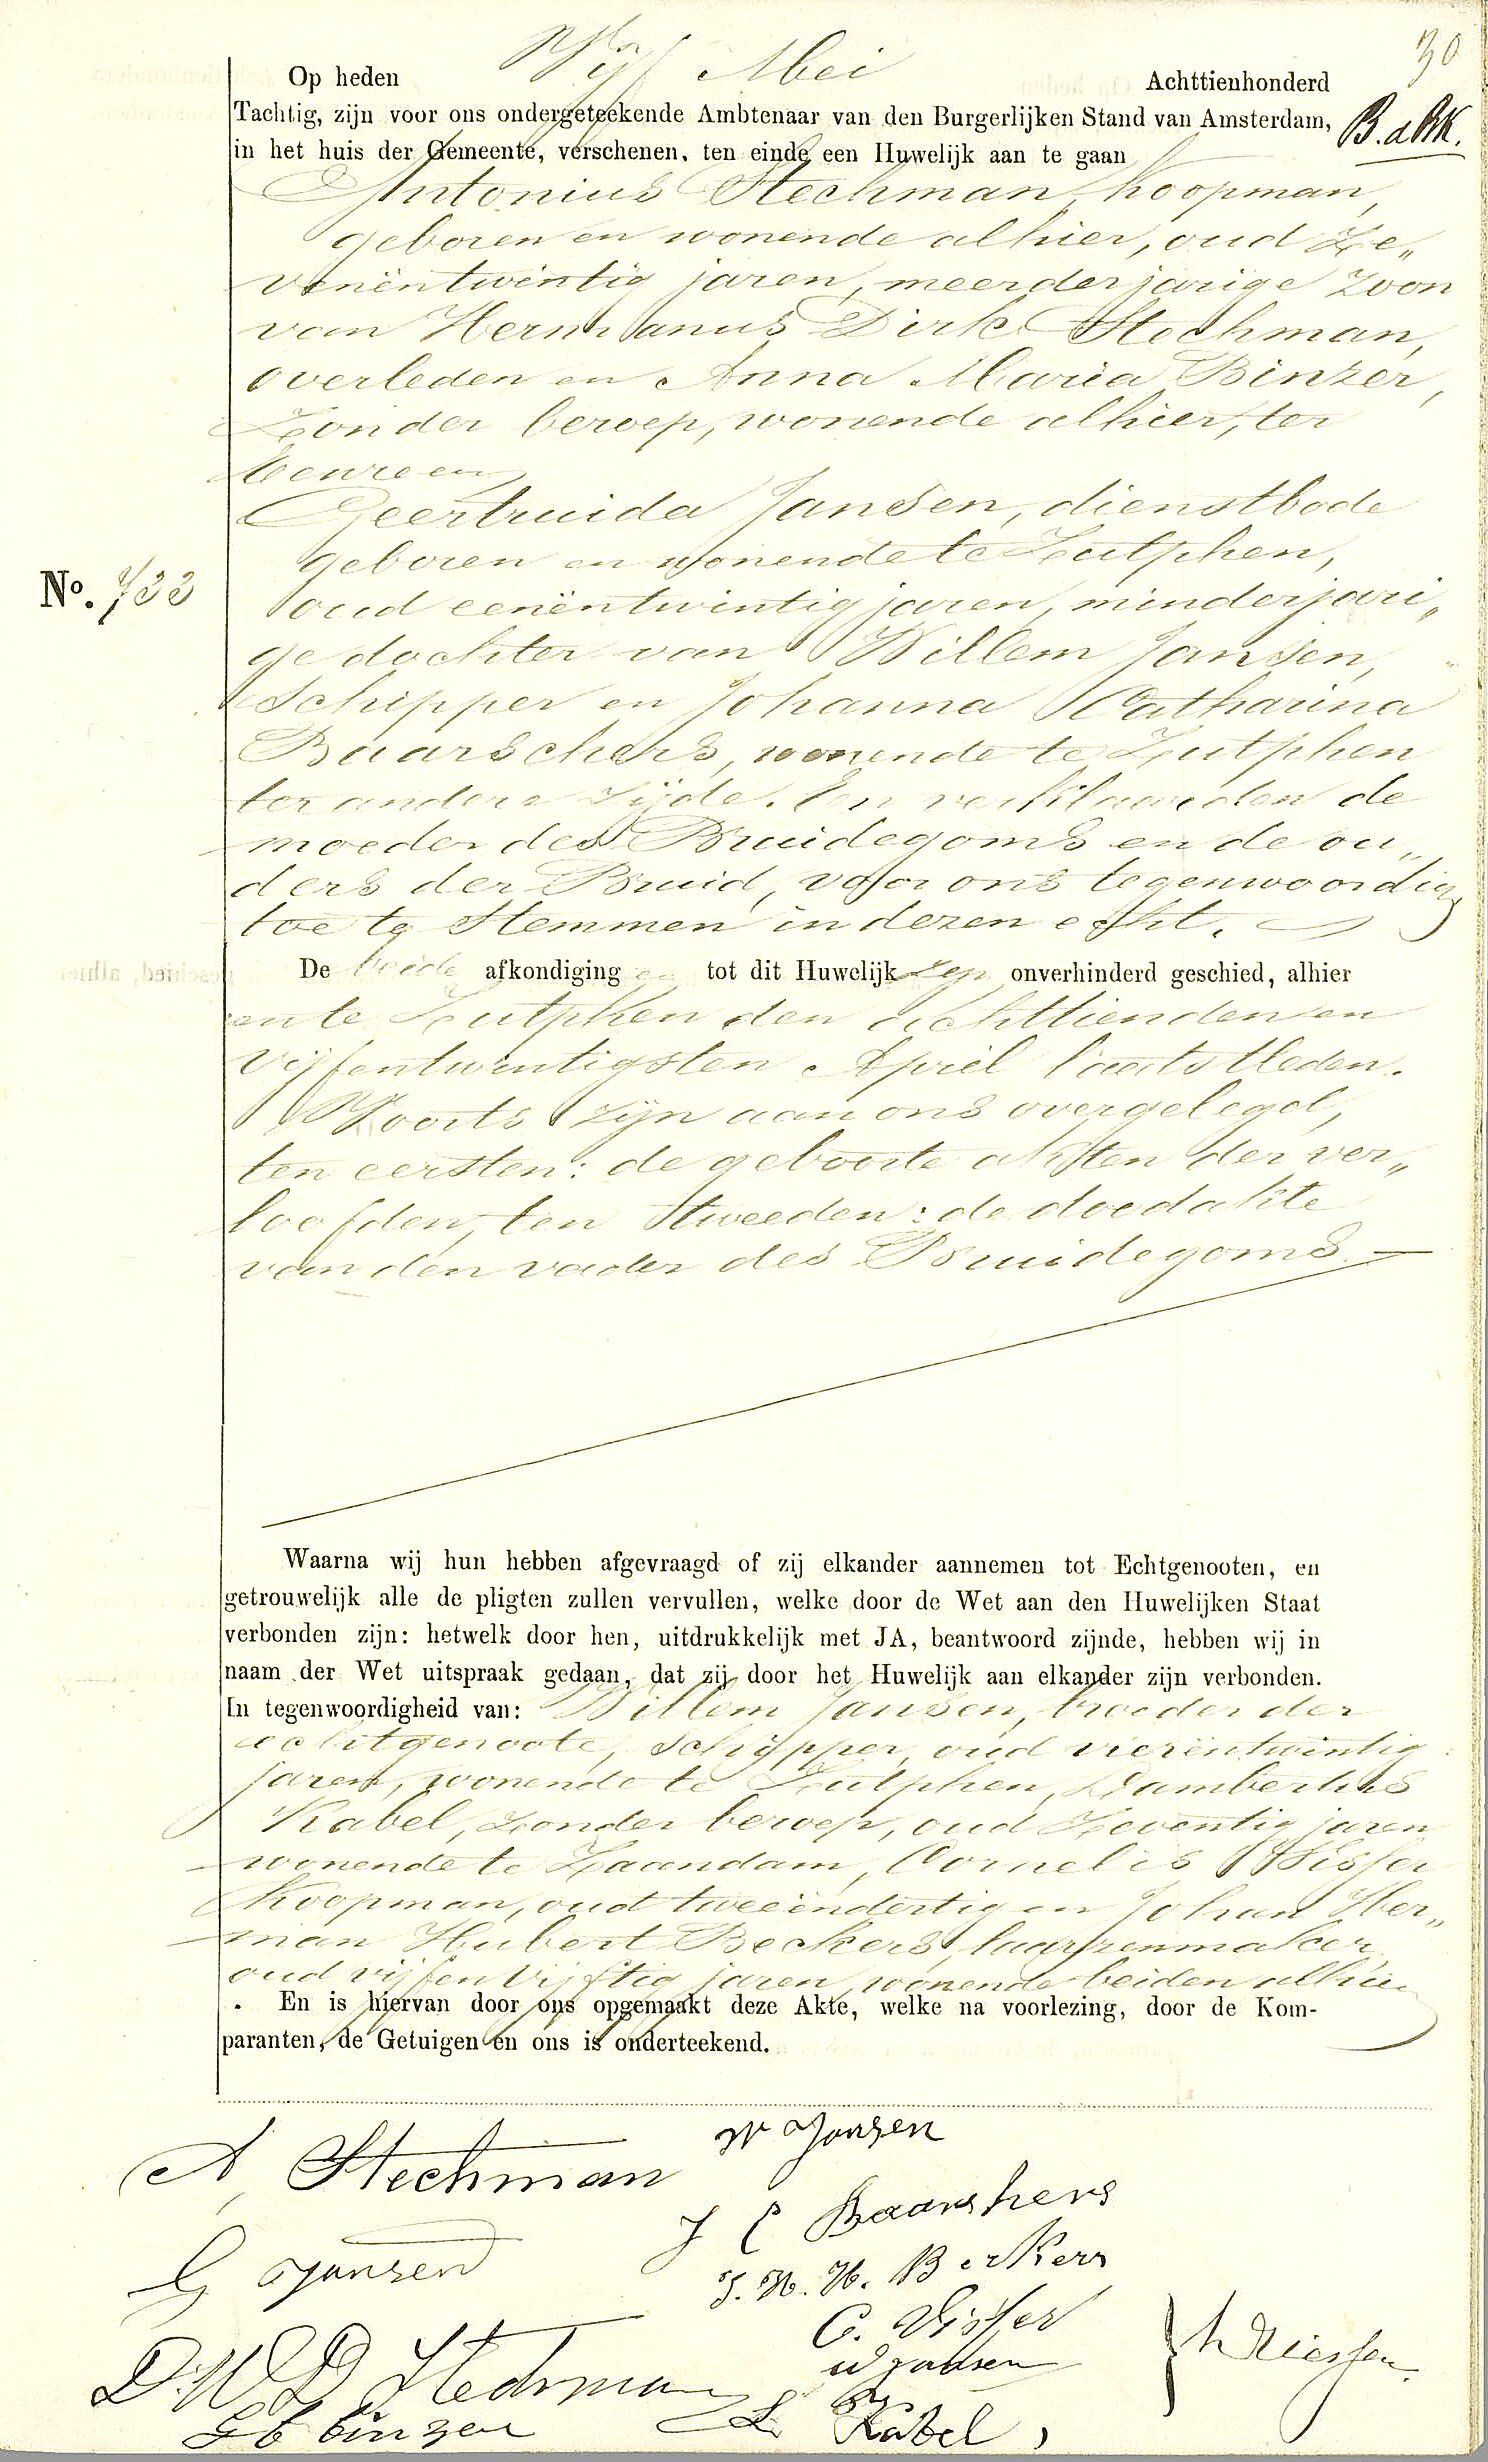 30
Op heden Vijf Mei Achttienhonderd
Tachtig, zijn voor ons ondergeteekende Ambtenaar van den Burgerlijken Stand van Amsterdam,
in het huis der Gemeente, verschenen, ten einde een Huwelijk aan te gaan
Antonius Stechman, Koopman,
geboren en wonende alhier, oud Ze„
venëntwintig jaren, meerderjarige zoon
van Hermanus Dirk Stechman,
overleden en Anna Maria Binzer,
zonder beroep, wonende alhier, ter
eenre en
Geertruida Jansen, dienstbode
geboren en wonende te Zutphen,
No. 733
oud eenëntwintig jaren, minderjari„
ge dochter van Willem Jansen,
Schipper en Johanna Catharina
Baarschers, wonende te Zutphen
ter andere zijde. En verklaarden de
moeder des Bruidegoms en de ou„
ders der Bruid, voor ons tegenwoordig
toe te stemmen in dezen echt.
De beide afkondiging en tot dit Huwelijk zijn onverhinderd geschied, alhier
en te Zutphen den achttienden en
vijfentwintigsten April laatstleden.
Voorts zijn aan ons overgelegd,
ten eersten: de geboorte akten der ver„
loofden, ten tweeden: de doodakte
van den vader des Bruidegoms
Waarna wij hun hebben afgevraagd of zij elkander aannemen tot Echtgenooten, en
getrouwelijk alle de pligten zullen vervullen, welke door de Wet aan den Huwelijken Staat
verbonden zijn: hetwelk door hen, uitdrukkelijk met JA, beantwoord zijnde, hebben wij in
naam der Wet uitspraak gedaan, dat zij door het Huwelijk aan elkander zijn verbonden.
In tegenwoordigheid van: Willem Jansen, broeder der
echtgenoote, schipper, oud vierëntwintig
jaren, wonende te Zutphen, Lambertus
Kabel, zonder beroep, oud Zeventig jaren
wonende te Zaandam, Cornelis Visser
Koopman, oud tweeëndertig en Johan Her„
man Hubert Beckers, laarzenmaker
oud vijfenvijftig jaren, wonende beiden alhier
. En is hiervan door ons opgemaakt deze Akte, welke na voorlezing, door de Kom-
paranten, de Getuigen en ons is onderteekend.
A Stechman W Jansen
J C Baarshers
G Jansen
J. H. H. Beckers
C. Visser
W Jansen
Stechman
Binzer
L Kabel